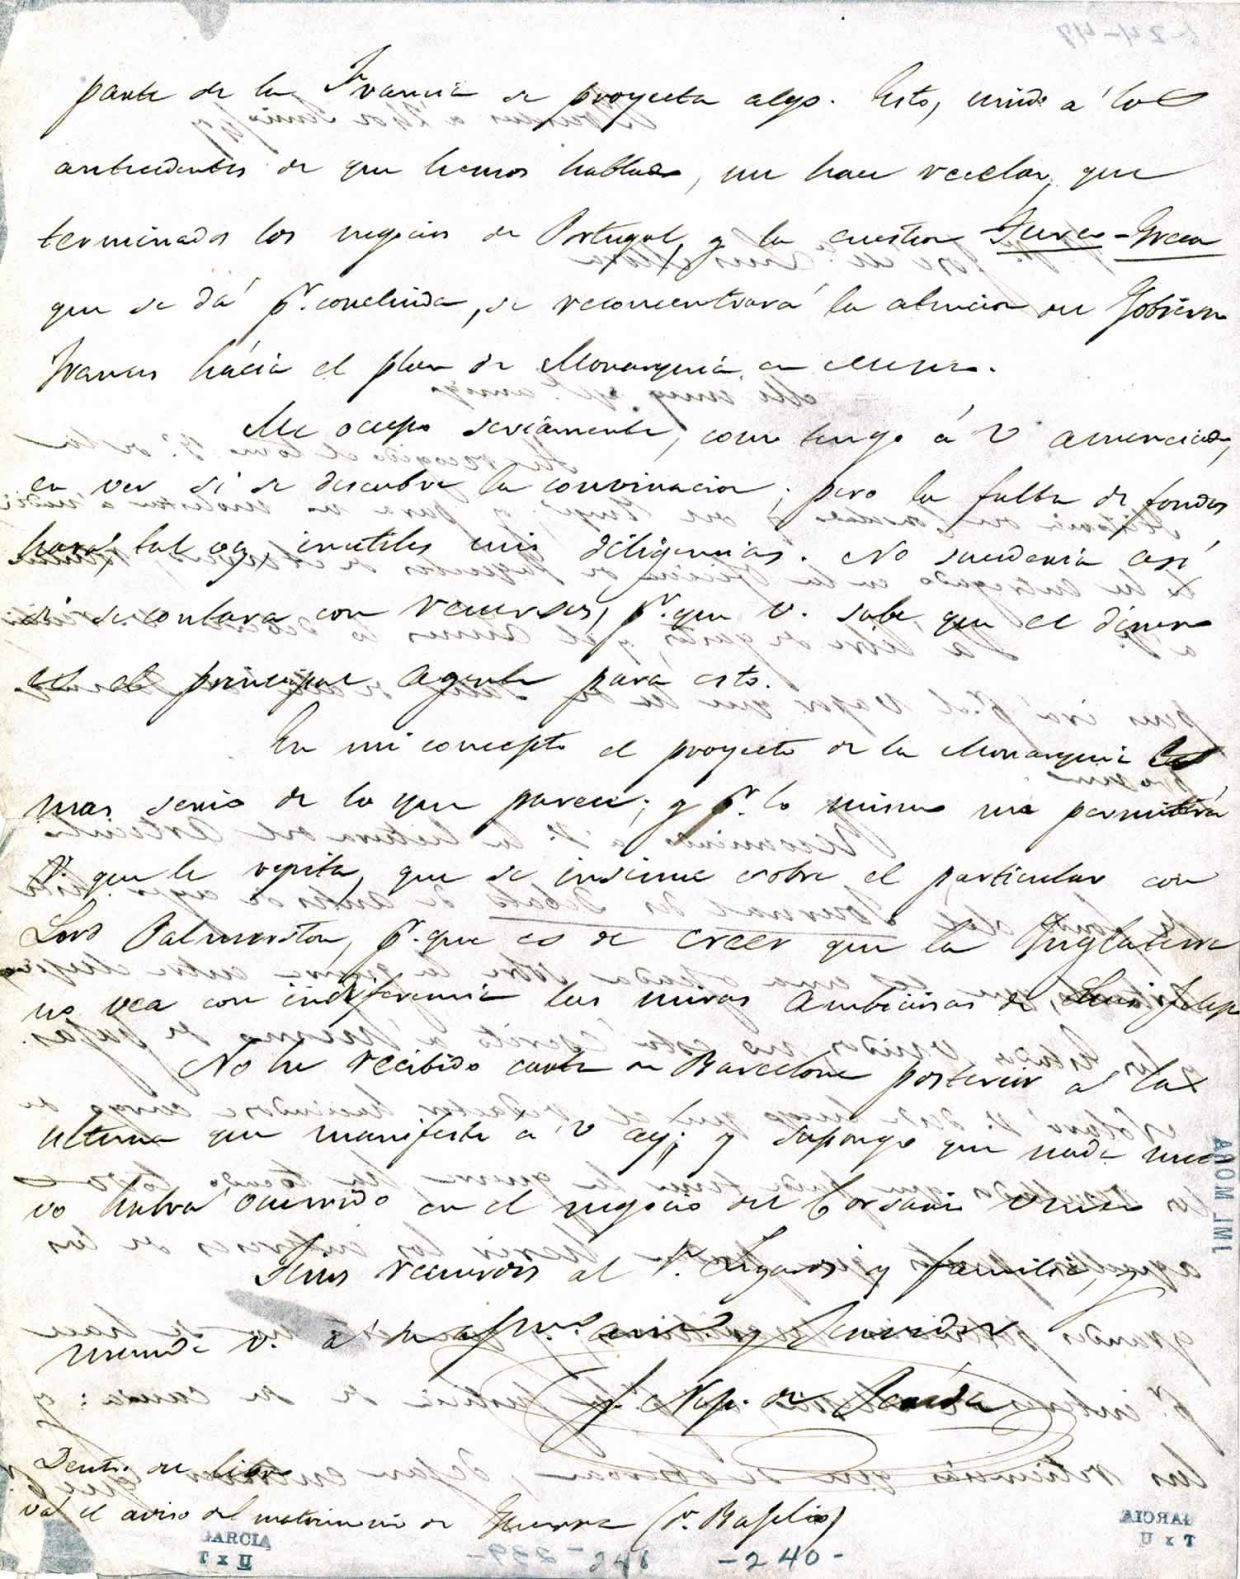 parte de la Francia se proyecta algo. Esto, unido a' los
antecedentes de que hemos hablado, me hace recelar, que
terminados los negocios de Portugal, y la cuestion Turco-Greca
que se dá pr. concluida, se reconcentrará la atencion del Gobierno
Frances hácia el plan de Monarquia en
Me ocupo seriamente, como tengo á V anunciado,
en ver si se descubre la convinacion; pero la falta de fondos
hara tal vez inutiles mis diligencias. No sucederia así
si se contara con recursos, pr. que V. sabe que el dinero
es el principal agente para esto.
En mi concepto el proyecto de la Monarquia es
mas serio de lo que parece; y pr. lo mismo me permitirá
V. que le repita, que se insinue sobre el particular con
Lord Palmerston, pr. que es de creer que la Inglaterra
no vea con indiferencia las miras ambiciosas de Luis Felipe
No he recibido carta de Barcelona posterior a' la
ultima que manifesté a' V ay; y supongo que nada nue
vo habrá ocurrido en el negocio del Corsario
Finos recuerdos al Sr. y familia, y
mande V. a' su afmo. amigo y Servidor
J. Nep. de Pereda
Dentro del libro
va el aviso del matrimonio de Guerra (Dn. Basilio)
GARCIA
T x U
246 -240-